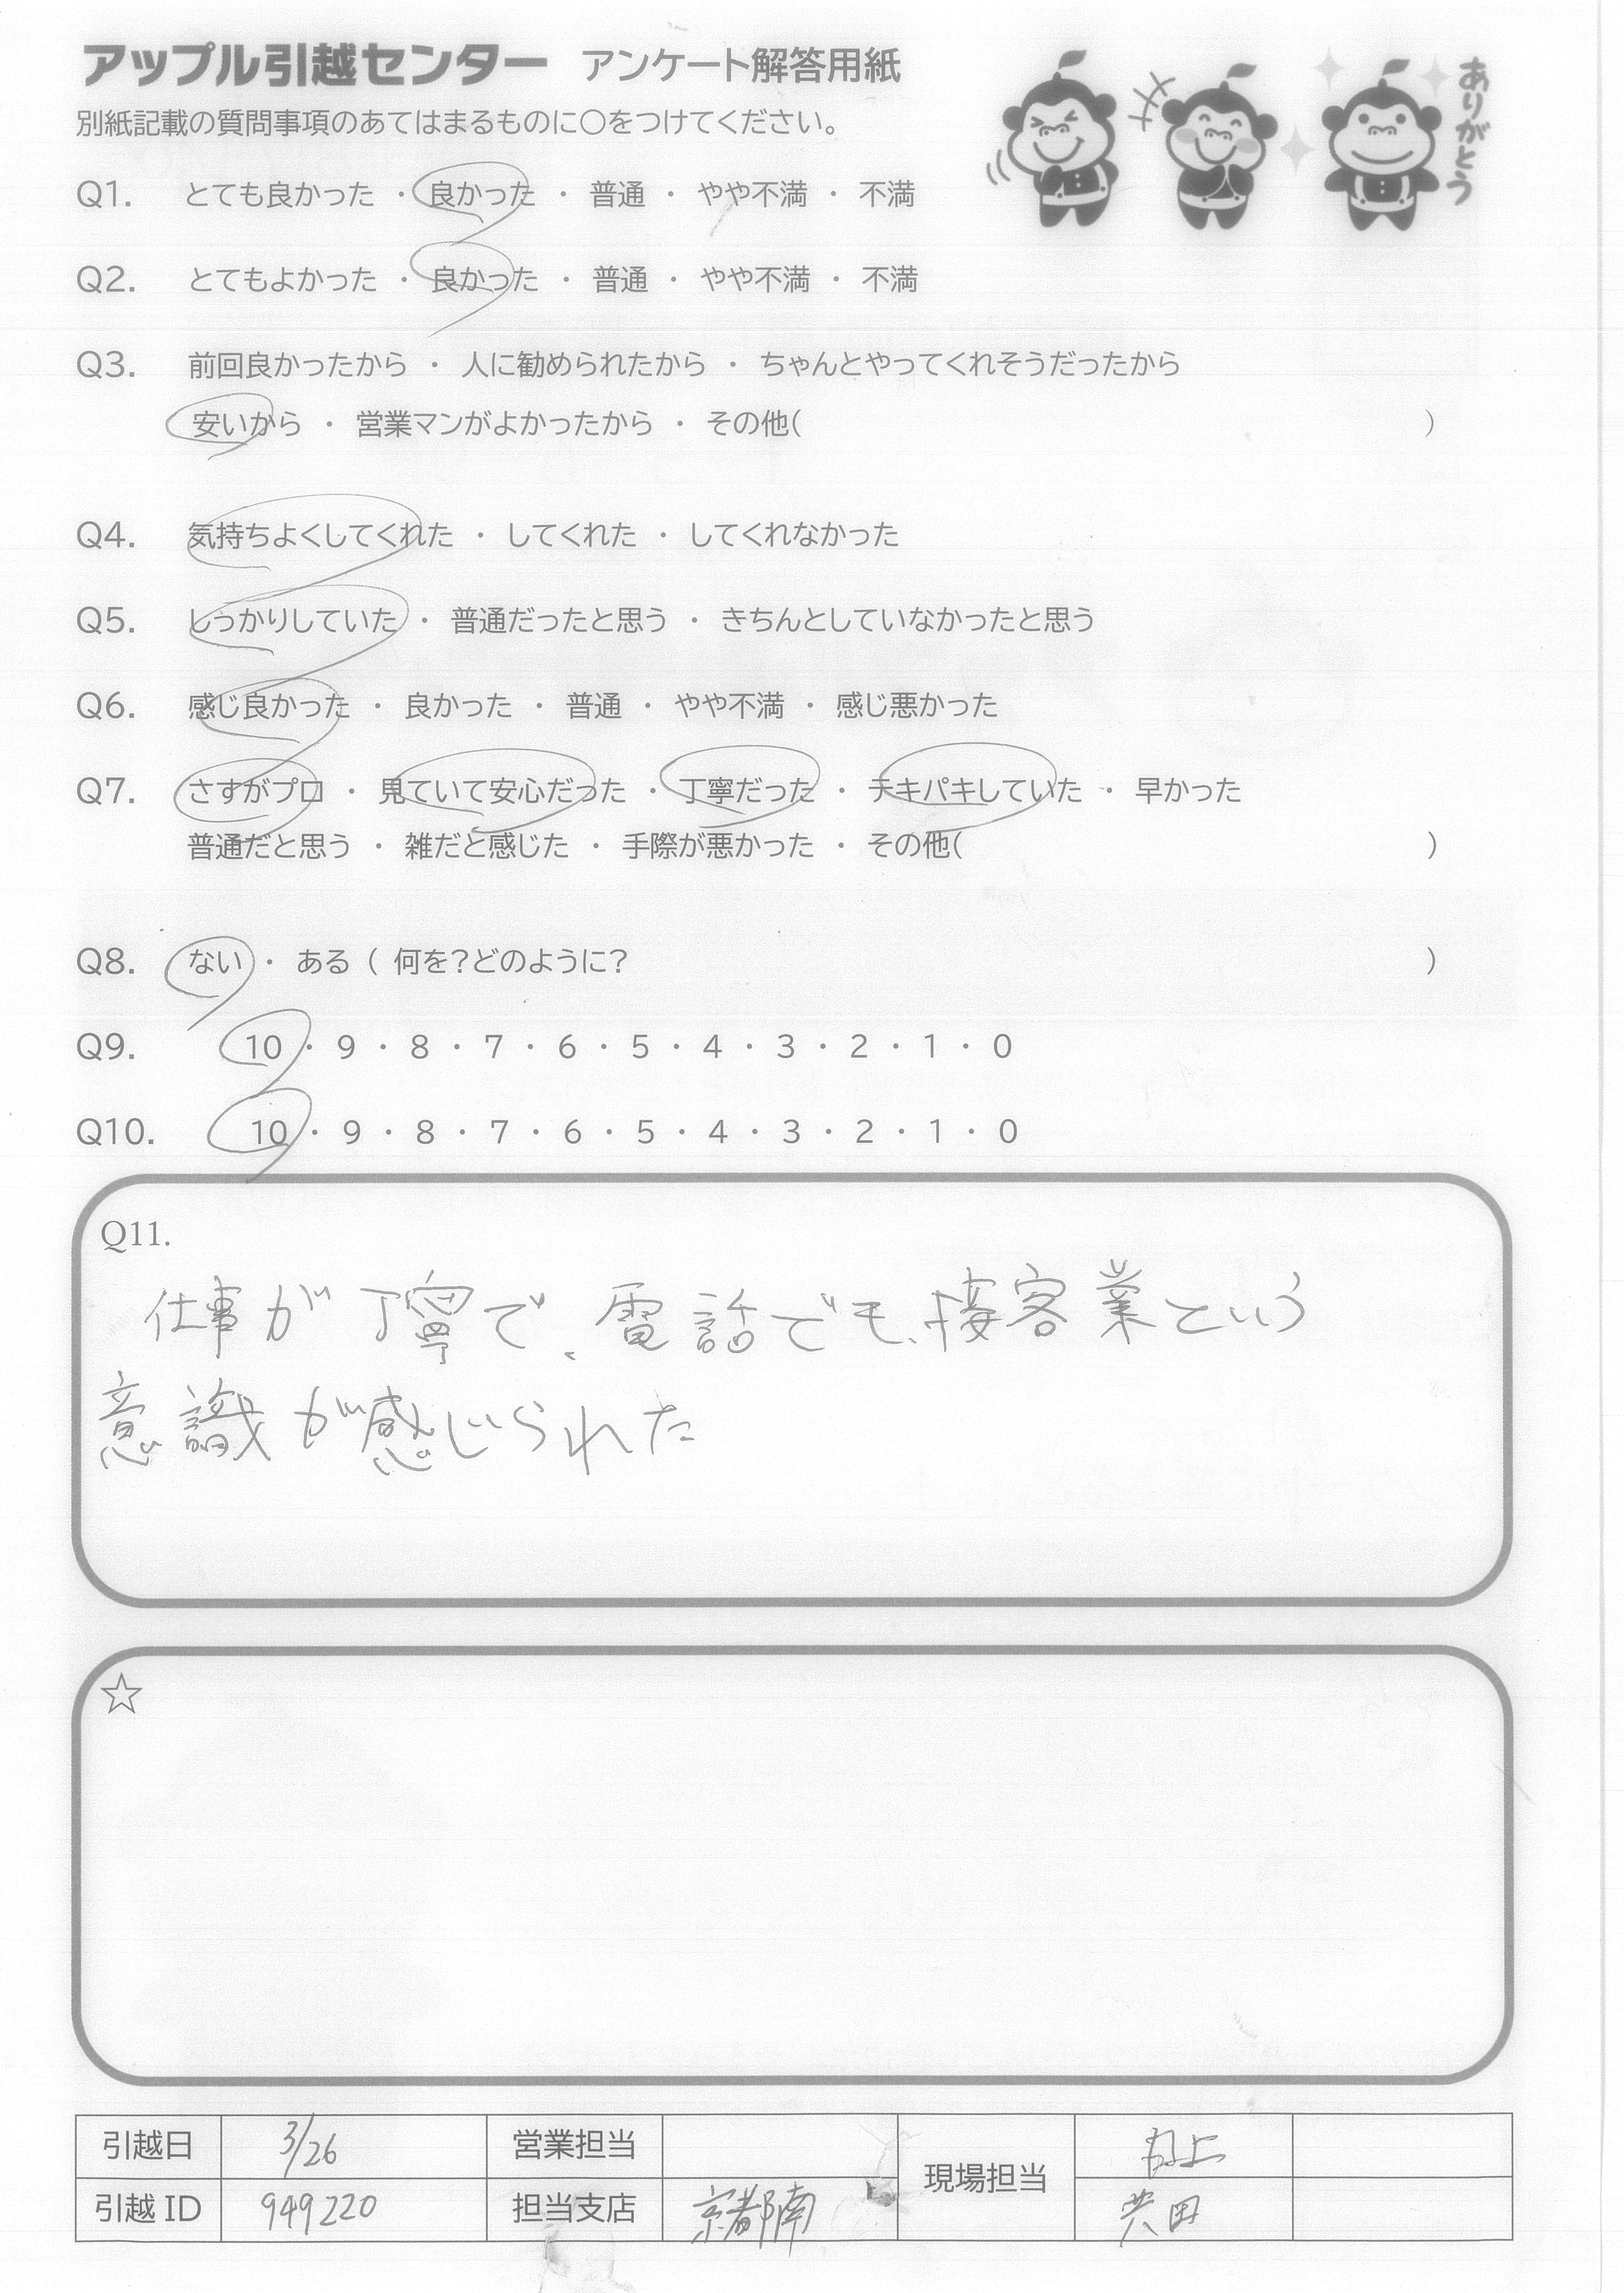 アップル引越センター アンケート解答用紙
ありがとう
別紙記載の質問事項のあてはまるものに○をつけてください。
Q1. とても良かった ・ 良かった ・ 普通 ・ やや不満 ・ 不満
Q2. とてもよかった ・ 良かった ・ 普通 ・ やや不満 ・ 不満
Q3. 前回良かったから ・ 人に勧められたから ・ ちゃんとやってくれそうだったから
安いから ・ 営業マンがよかったから ・ その他( )
Q4. 気持ちよくしてくれた ・ してくれた ・ してくれなかった
Q5. しっかりしていた ・ 普通だったと思う ・ きちんとしていなかったと思う
Q6. 感じ良かった ・ 良かった ・ 普通 ・ やや不満 ・ 感じ悪かった
Q7. さすがプロ ・ 見ていて安心だった ・ 丁寧だった ・ テキパキしていた ・ 早かった
普通だと思う ・ 雑だと感じた ・ 手際が悪かった ・ その他( )
Q8. ない ・ ある ( 何を?どのように? )
Q9. 10 ・ 9 ・ 8 ・ 7 ・ 6 ・ 5 ・ 4 ・ 3 ・ 2 ・ 1 ・ 0
Q10. 10 ・ 9 ・ 8 ・ 7 ・ 6 ・ 5 ・ 4 ・ 3 ・ 2 ・ 1 ・ 0
Q11.
仕事が丁寧で、電話でも、接客業という
意識が感じられた
☆
引越日 3/26 営業担当 現場担当
引越ID 949220 担当支店 京都南